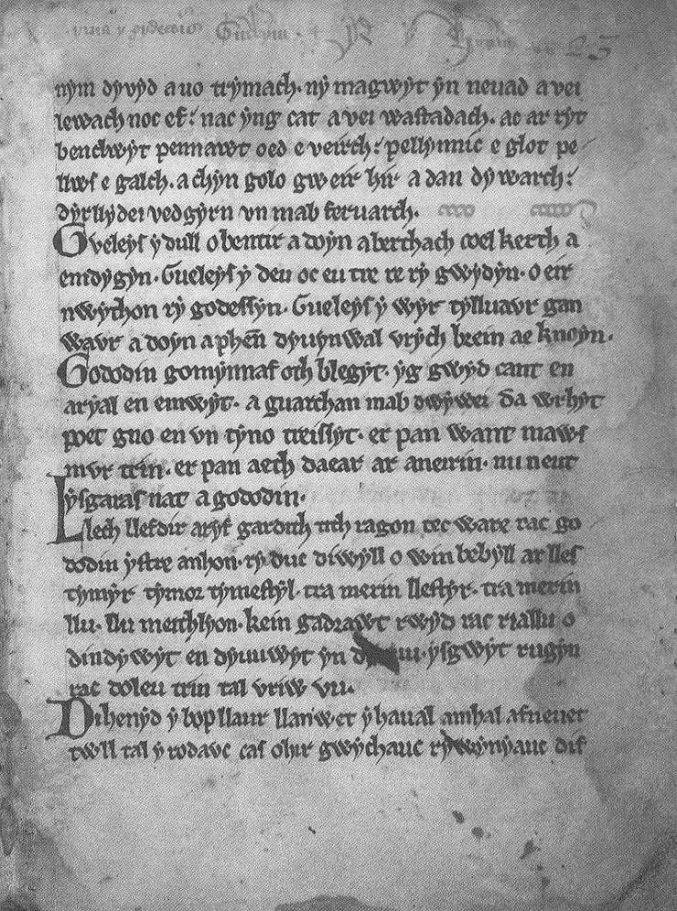 23
nym dyvyd a uo trymach. ny magwyt yn neuad a vei
lewach noc ef: nac yng cat a vei wastadach. ac ar ryt
benclwyt pennawt oed e veirch: pellynnic e glot pe
llws e galch. a chyn golo gweir hir a dan dywarch:
dyrllydei vedgyrn vn mab feruarch.
Gveleys y dull o bentir a doyn aberthach coel kerth a
emdygyn. Gueleys y deu oc eu tre re ry gwydyn. o eir
nwython ry godessyn. Gueleys y wyr tylluavr gan
wavr a doyn a phen̄ dyuynwal vrych brein ae knoyn.
Gododin gomynnaf oth blegyt. yg gwyd cant en
aryal en emwyt. a guarchan mab dwywei da wrhyt
poet gno en vn tyno treissyt. er pan want maws
mvr trin. er pan aeth daear ar aneirin. nu neut
ysgaras nat a gododin.
Llech llefdir aryf gardith tith ragon tec ware rac go
dodin ystre anhon. ry duc diwyll o win bebyll ar lles
tymyr tymor tymestyl. tra merin llestyr. tra merin
llu. llu meithlyon. kein gadrawt rwyd rac riallu o
dindywyt en dyuuwyt yn ysgwyt rugyn
rac doleu trin tal vriw vu.
Dihenyd y bop llaur llanwet y haual amhal afneuet
twll tal y rodavc cas ohir gwychauc rywynyauc dif